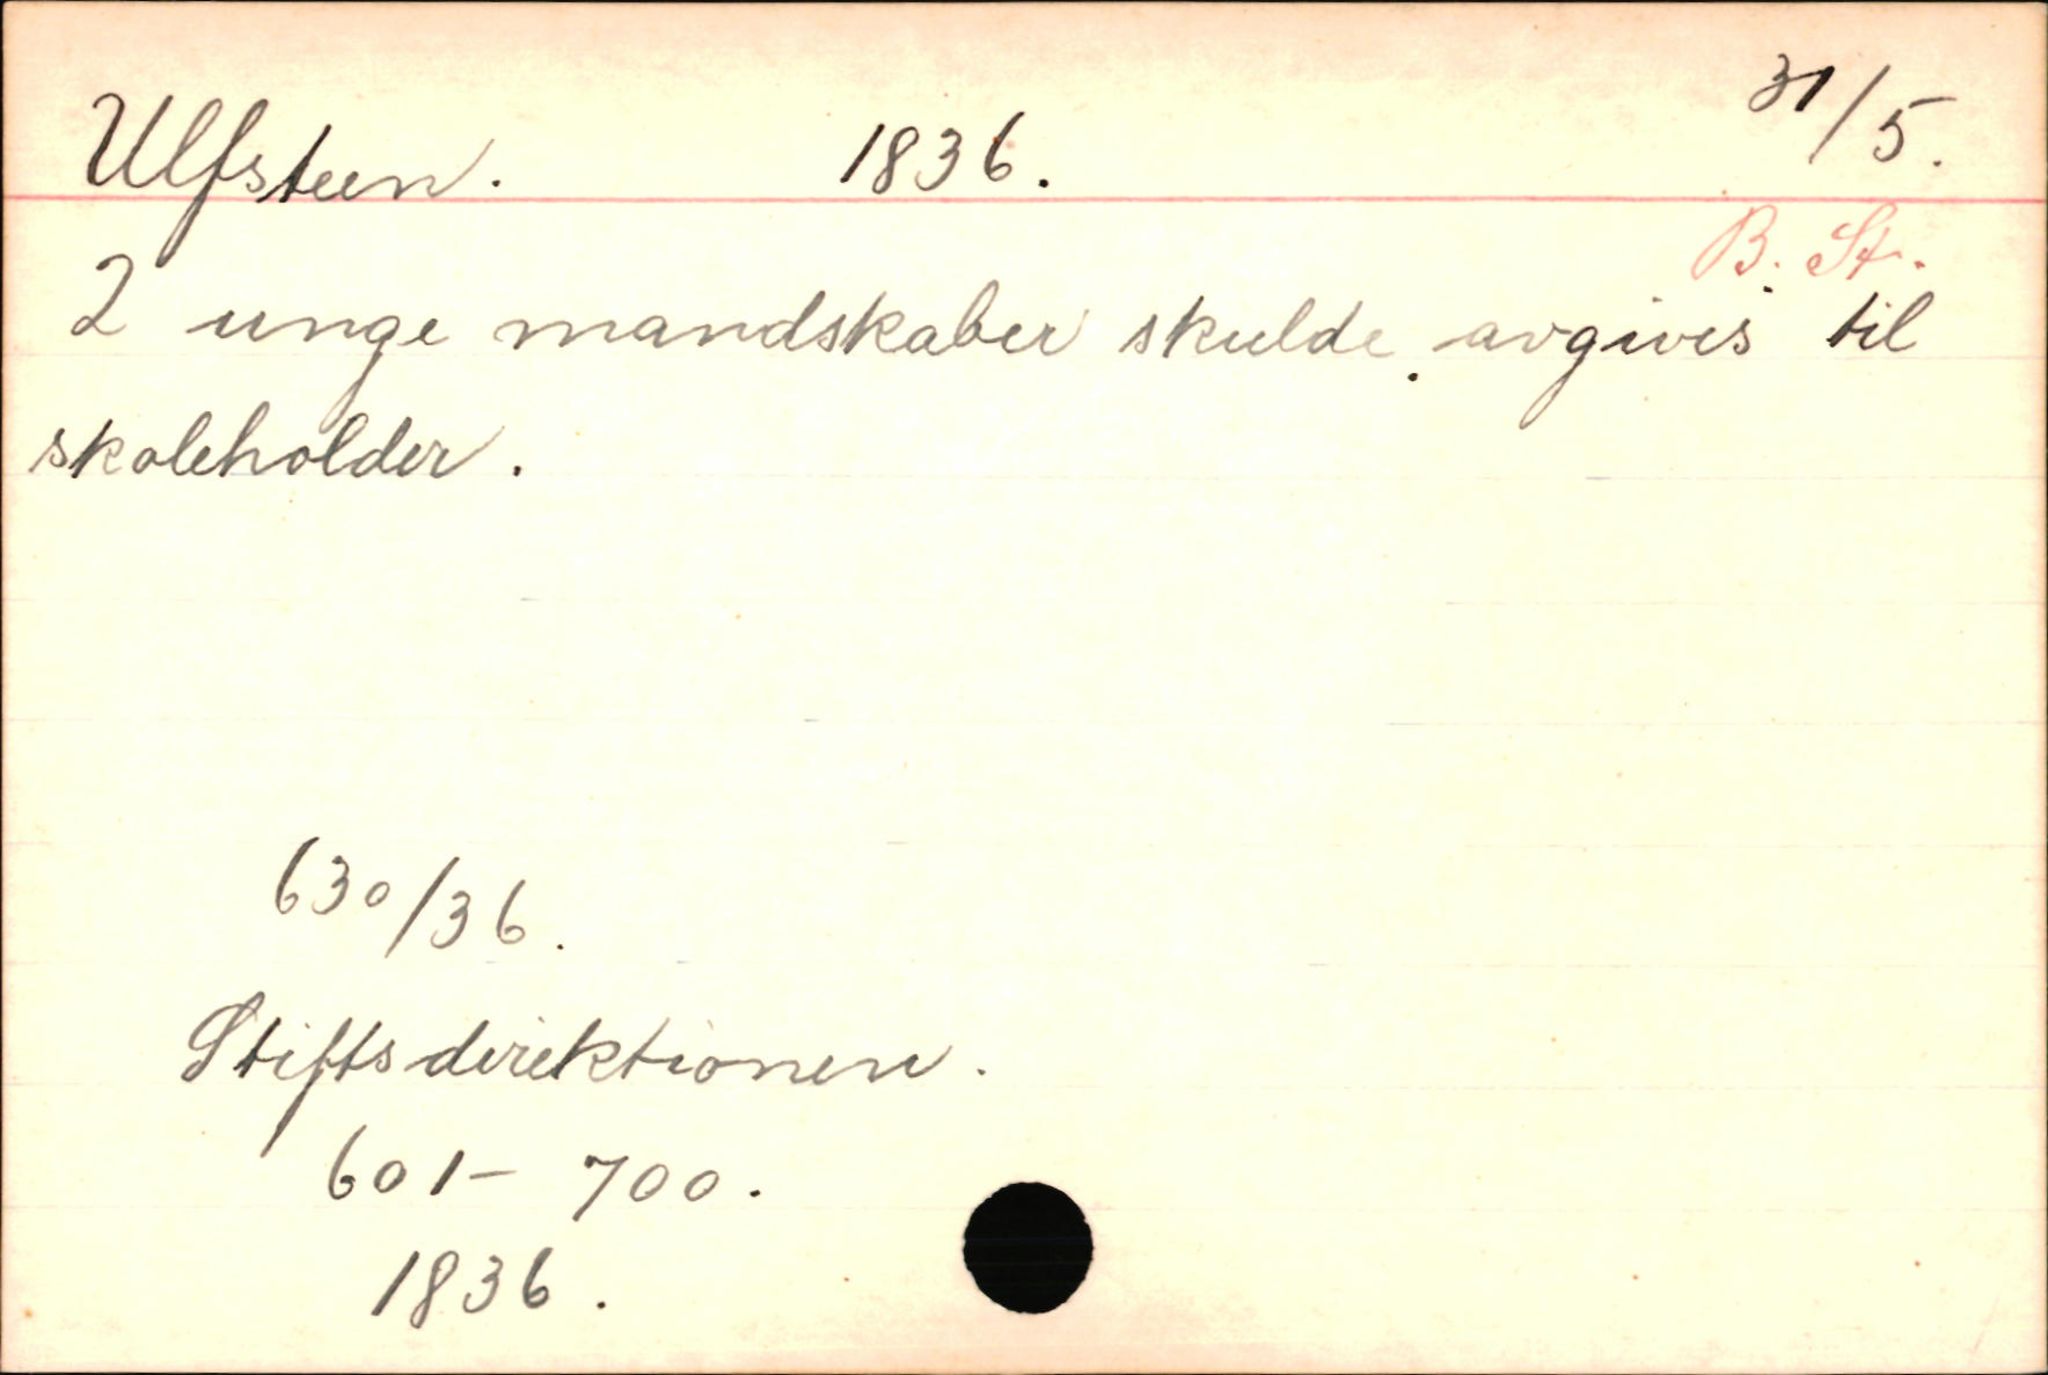 Ulfsteen. 1836. 31/5.
B. St.
2 unge mandskaber skulde avgives til
skoleholder.
630/36.
Stiftsdirektionen.
601- 700.
1836.